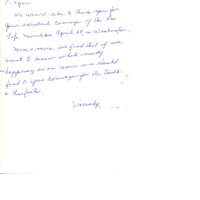 C-Span
We would like to thank you for
your excellent coverage of the Pro
Life March on April 28 in Washington.
More & more, we find that if we
want to know what really
happening on an issue we should
find C-Span coverage for the truth
& the facts.
Sincerely,